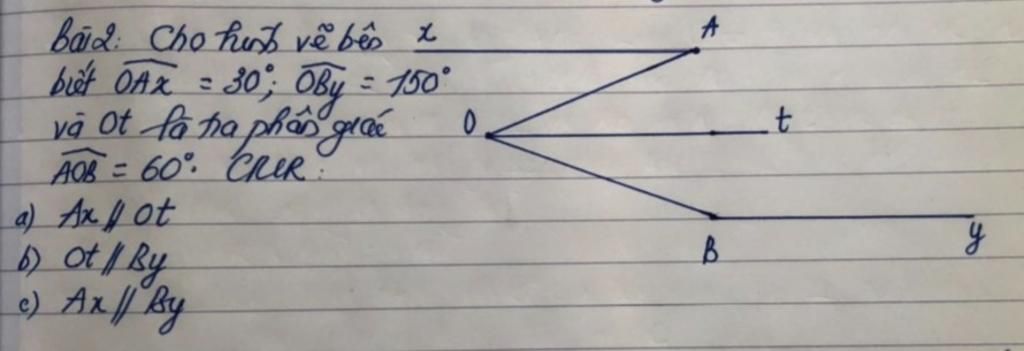 Bài 2: Cho hình vẽ bên
biết OAx = 30°; OBy = 150°
và Ot là tia phân giác
AOB = 60°. CMR:
a) Ax // Ot
b) Ot // By
c) Ax // By
x A
O t
B y